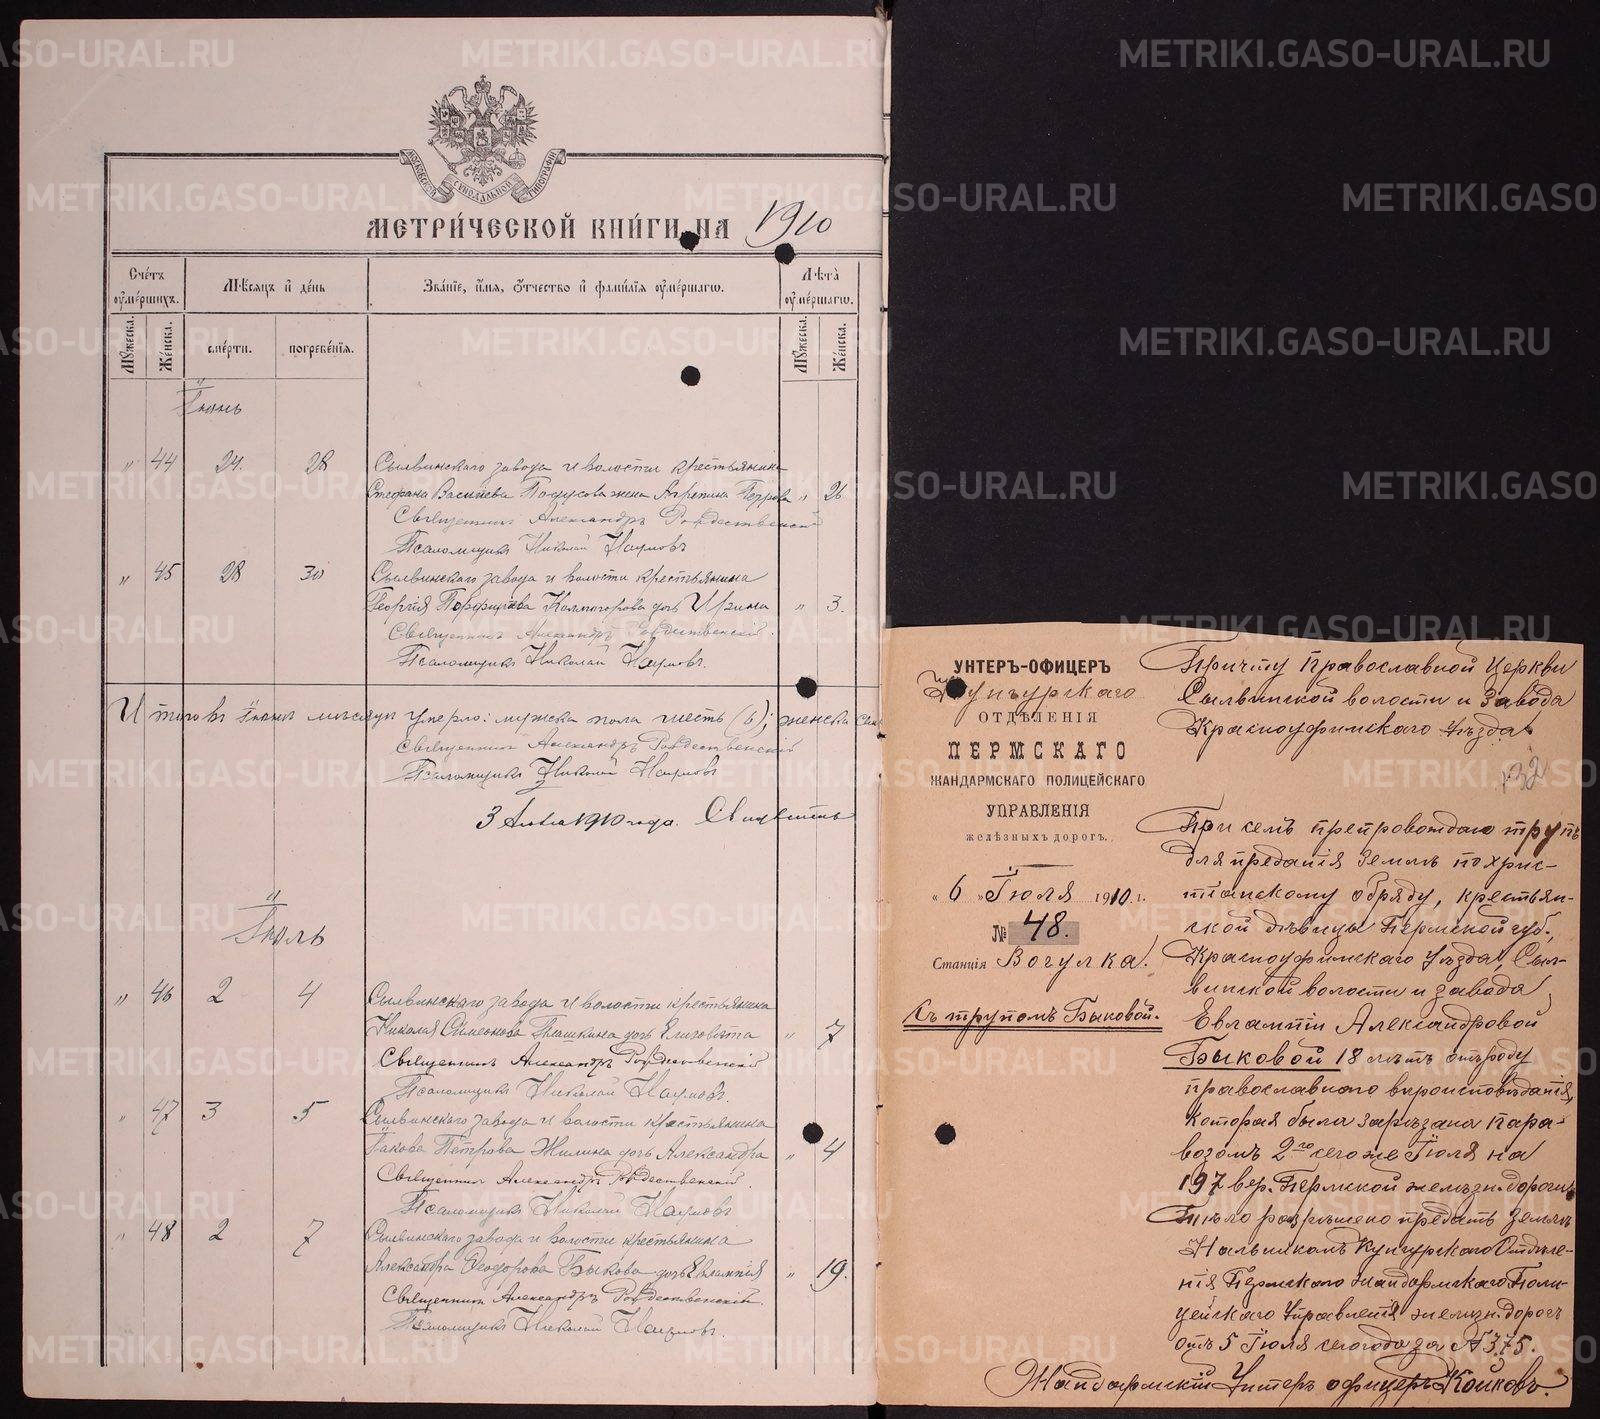 METRIKI.GASO-URAL.RU
МОСКОВСКОЙ СѴНОДАЛЬНОЙ ТИПОГРАФІИ
МЕТРИ́ЧЕСКОЙ КНИ́ГИ НА 1910
Сче́тъ ᲂу҆ме́ршихъ.
Мѣ́сяцъ и҆ де́нь
Зва́нїе, и҆́мѧ, ѻ҆́тчество и҆ фами́лїѧ ᲂу҆ме́ршагѡ.
Лѣ́та ᲂу҆ме́ршагѡ.
Мꙋ́жеска.
Же́нска.
сме́рти.
погребе́нїѧ.
Мꙋ́жеска.
Же́нска.
Іюнь
" 44 24. 28 Сылвинскаго завода и волости крестьянина
Стефана Васильева жена Агрепина Петрова " 26
Священникъ Александръ Рождественскій
Псаломщикъ Николай Наумовъ
" 45 28 30 Сылвинскаго завода и волости крестьянина
Георгія Порфирьева Колмогорова дочь Ирина " 3.
Священникъ Александръ Рождественскій.
Псаломщикъ Николай Наумовъ.
Итого въ Іюнѣ мѣсяцѣ умерло: мужска пола шесть (6); женска
Священникъ Александръ Рождественскій
Псаломщикъ Николай Наумовъ
3 1910 года.
Іюль
" 46 2 4 Сылвинскаго завода и волости крестьянина
Николая Симеонова дочь Елизовета " 7
Священникъ Александръ Рождественскій
Псаломщикъ Николай Наумовъ.
" 47 3 5 Сылвинскаго завода и волости крестьянина
Іакова Петрова Жилина дочь Александра " 4
Священникъ Александръ Рождественскій.
Псаломщикъ Николай Наумовъ
" 48 2 7 Сылвинскаго завода и волости крестьянина
Александра Ѳеодорова Быкова дочь Евлампія " 19.
Священникъ Александръ Рождественскій.
Псаломщикъ Николай Наумовъ.
УНТЕРЪ-ОФИЦЕРЪ
Кунгурскаго
ОТДѢЛЕНІЯ
ПЕРМСКАГО
ЖАНДАРМСКАГО ПОЛИЦЕЙСКАГО
УПРАВЛЕНІЯ
желѣзныхъ дорогъ.
« 6 » Іюля 1910 г.
№ 48.
Станція Вогулка.
Съ трупомъ Быковой.
Причту Православной Церкви
Сылвинской волости и Завода
Красноуфимскаго уѣзда
132
При семъ препровождаю трупъ
для преданія землѣ по хрис-
тіанскому обряду, крестьян-
ской дѣвицы Пермской губ.,
Красноуфимскаго уѣзда, Сыл-
винской волости и завода,
Евлампіи Александровой
Быковой 18 лѣтъ отъ роду
православнаго вѣроисповѣданія,
которая была зарѣзана пара-
возомъ 2го сего же Іюля на
197 вер. Пермской желѣзн. дороги.
Тѣло разрѣшено предать землѣ
Начальникомъ Кунгурскаго Отдѣле-
нія Пермскаго Жандармскаго Поли-
цейскаго Управленія желѣзн. дорогъ
отъ 5 Іюля сего года за № 375.
Жандармскій Унтеръ офицеръ